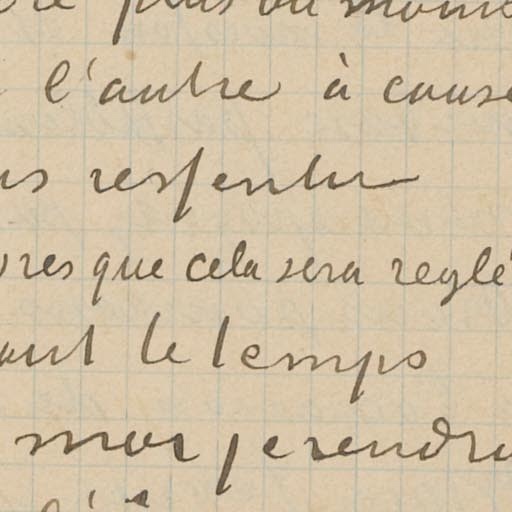 plus ou moins
l'autre à cause
ressentir
que cela sera reglé
le temps
moi je rendr